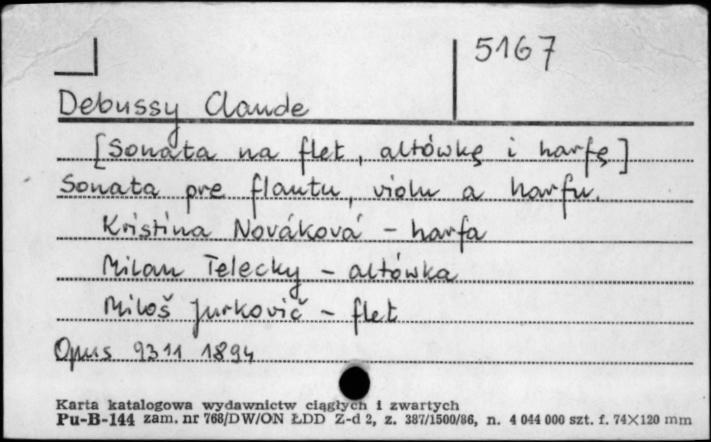 5167
Debussy Claude
[Sonata na flet, altówkę i harfę]
Sonata pre flautu, violu a harfu.
Kristina Nováková - harfa
Milan Telecky - altówka
Miloš Jurkovič - flet
Opus 9311 1894
Karta katalogowa wydawnictw ciągłych i zwartych
Pu-B-144 zam. nr 768/DW/ON ŁDD Z-d 2, z. 387/1500/86, n. 4 044 000 szt. f. 74×120 mm